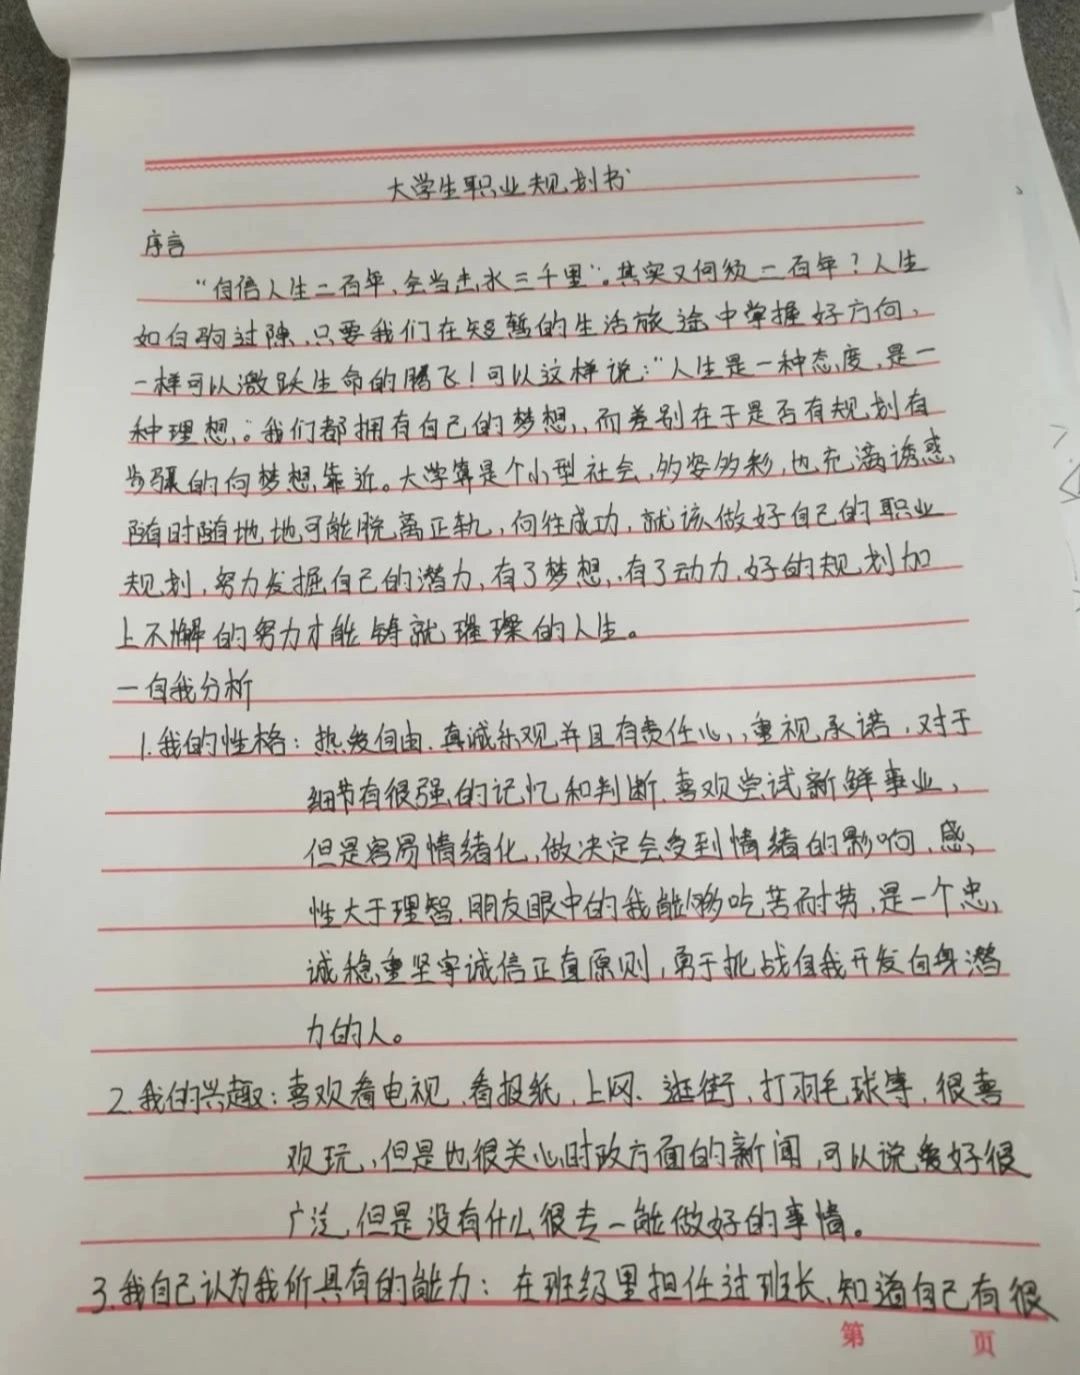 大学生职业规划书
序言
“自信人生二百年,会当击水三千里”。其实又何须二百年?人生
如白驹过隙,只要我们在短暂的生活旅途中掌握好方向,
一样可以激跃生命的腾飞!可以这样说:“人生是一种态度,是一
种理想,。我们都拥有自己的梦想,而差别在于是否有规划有
步骤的向梦想靠近。大学算是个小型社会,多姿多彩,也充满诱惑,
随时随地地可能脱离正轨,向往成功,就该做好自己的职业
规划,努力发掘自己的潜力,有了梦想,有了动力,好的规划加
上不懈的努力才能铸就璀璨的人生。
一自我分析
1.我的性格:热爱自由、真诚乐观并且有责任心,重视承诺,对于
细节有很强的记忆和判断,喜欢尝试新鲜事业,
但是容易情绪化,做决定会受到情绪的影响,感
性大于理智,朋友眼中的我能够吃苦耐劳,是一个忠
诚稳重坚守诚信正直原则,勇于挑战自我开发自身潜
力的人。
2.我的兴趣:喜欢看电视、看报纸、上网、逛街、打羽毛球等,很喜
欢玩,但是也很关心时政方面的新闻,可以说爱好很
广泛,但是没有什么很专一能做好的事情。
3.我自己认为我所具有的能力:在班级里担任过班长,知道自己有很
第 页